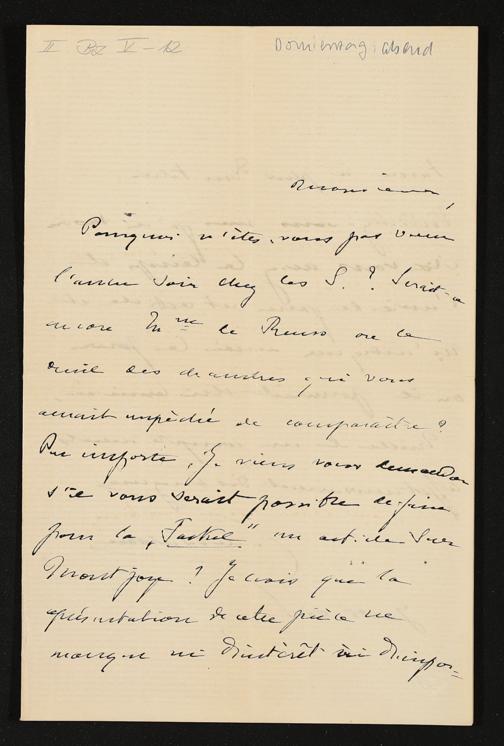 II Bz V-12
Donnerstag abend
Monsieur,
Pourquoi n'êtes-vous pas venu
l'autre soir chez les S.? Serait-ce
encore Mme de Reuss ou le
deuil des
qui vous
aurait empêché de comparaître?
Peu importe, Je viens vous demander
s'il vous serait possible de faire
pour la „Fackel" un article sur
Montjoye? Je crois que la
représentation de cette pièce ne
manque ni d'intérêt ni d'impor=